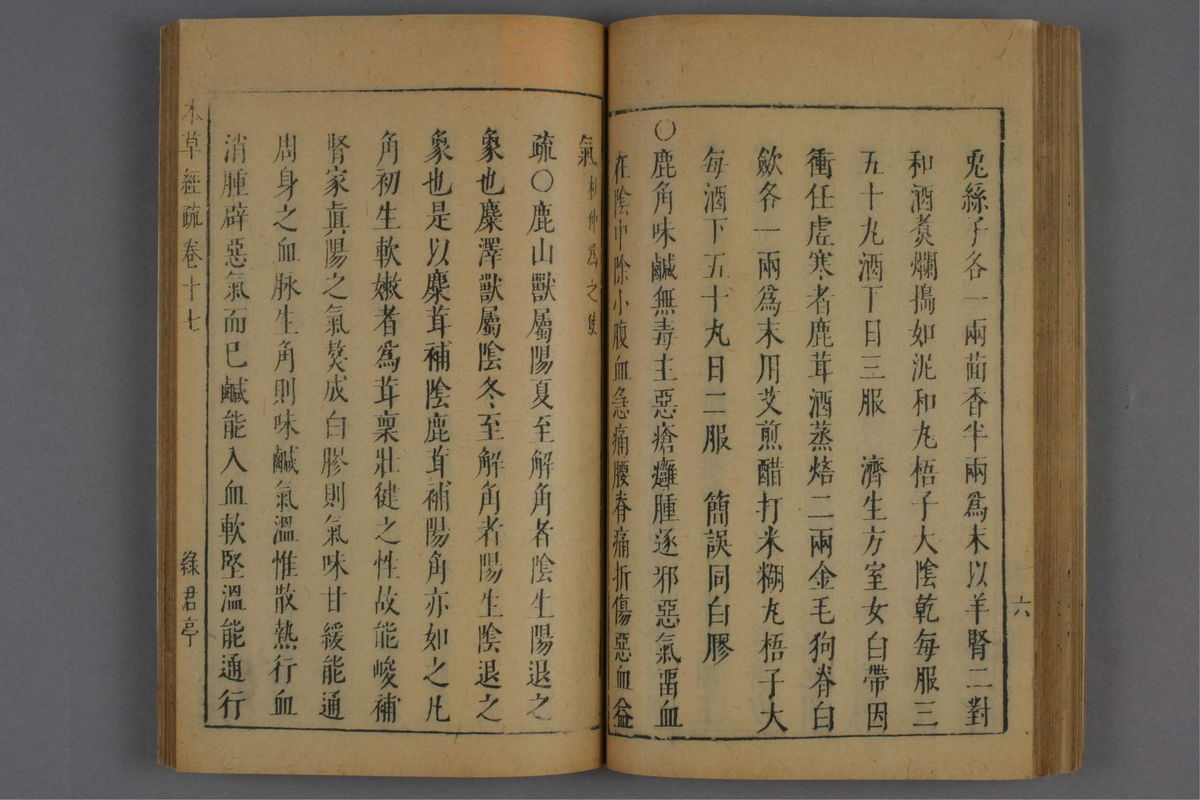 兎絲子各一兩茴香半兩爲末以羊腎二對
和酒煑爛搗如泥和丸梧子大陰乾每服三
五十丸酒下日三服　濟生方室女白帶因
衝任虛寒者鹿茸酒蒸焙二兩金毛狗脊白
歛各一兩爲末用艾煎醋打米糊丸梧子大
每酒下五十丸日二服　簡誤同白膠
○鹿角味鹹無毒主惡瘡癰腫逐邪惡氣畱血
在陰中除小腹血急痛腰脊痛折傷惡血益
六
氣杜仲爲之使
疏○鹿山獸屬陽夏至解角者陰生陽退之
象也麋澤獸屬陰冬至解角者陽生陰退之
象也是以麋茸補陰鹿茸補陽角亦如之凡
角初生軟嫩者爲茸禀壯徤之性故能峻補
腎家眞陽之氣熬成白膠則氣味甘緩能通
周身之血脉生角則味鹹氣溫惟散熱行血
消腫辟惡氣而已鹹能入血軟堅溫能通行
本草經疏卷十七
綠君亭